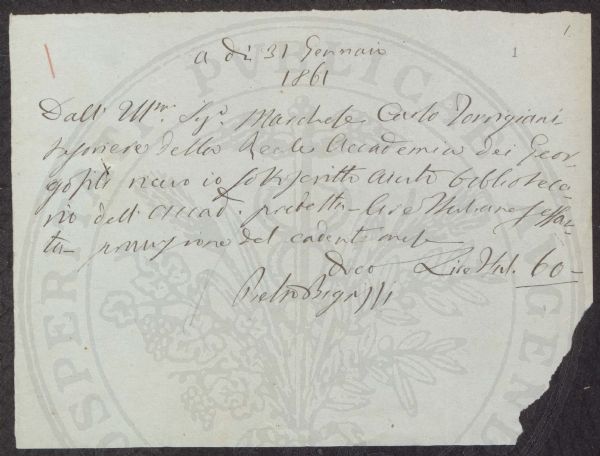 1.
1
a dì 31 Gennaio
1861
Dall' Ill.mo Sig.r Marchese Carlo Torrigiani
Tesoriere della Reale Accademia dei Geor-
gofili ricevo io sottoscritto aiuto biblioteca-
rio dell' Accad. predetta Lire Italiane sessan-
ta provvisione del cadente mese
Dico Lire Ital. 60 =
Pietro Bigazzi
PROSPERITATI PUBLICAE AUGENDAE